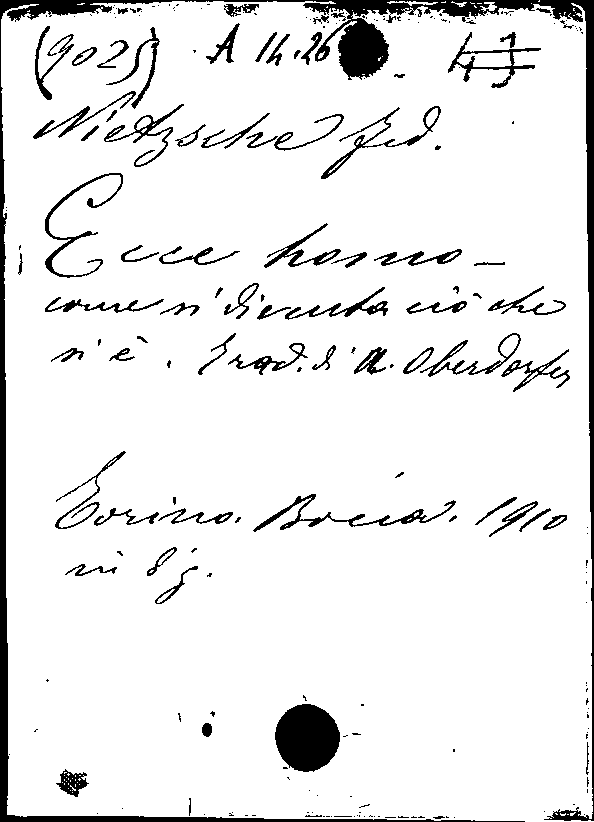 (9025) A 14.26
Nietzsche Fed.
Ecce homo -
come si diventa ciò che
si è. Trad. di A. Oberdorfer
Torino. Bocca. 1910
in 8°g.